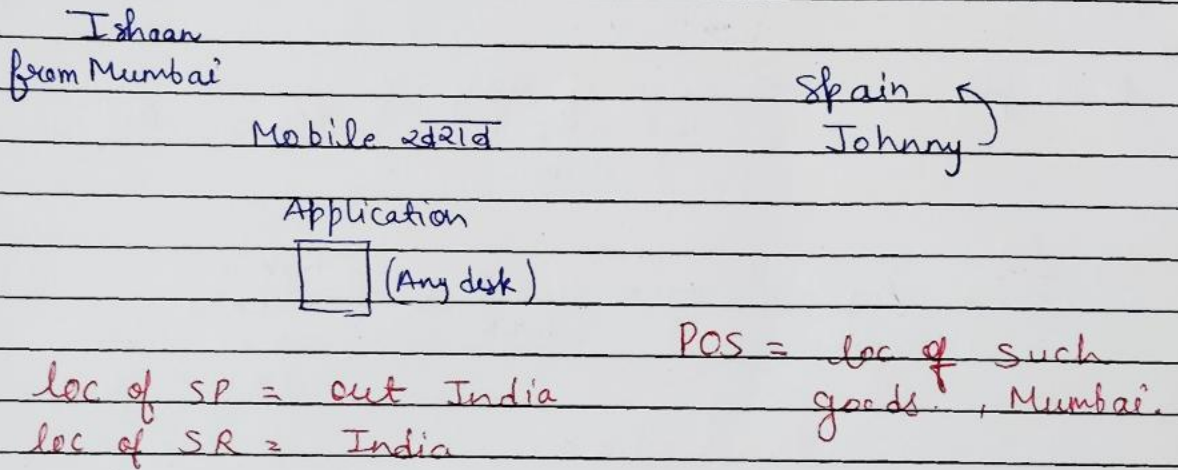 Ishaan
from Mumbai
Spain
Johnny
Mobile खराब
Application
(Any desk)
POS = loc of such
goods. , Mumbai.
loc of SP = out India
loc of SR = India